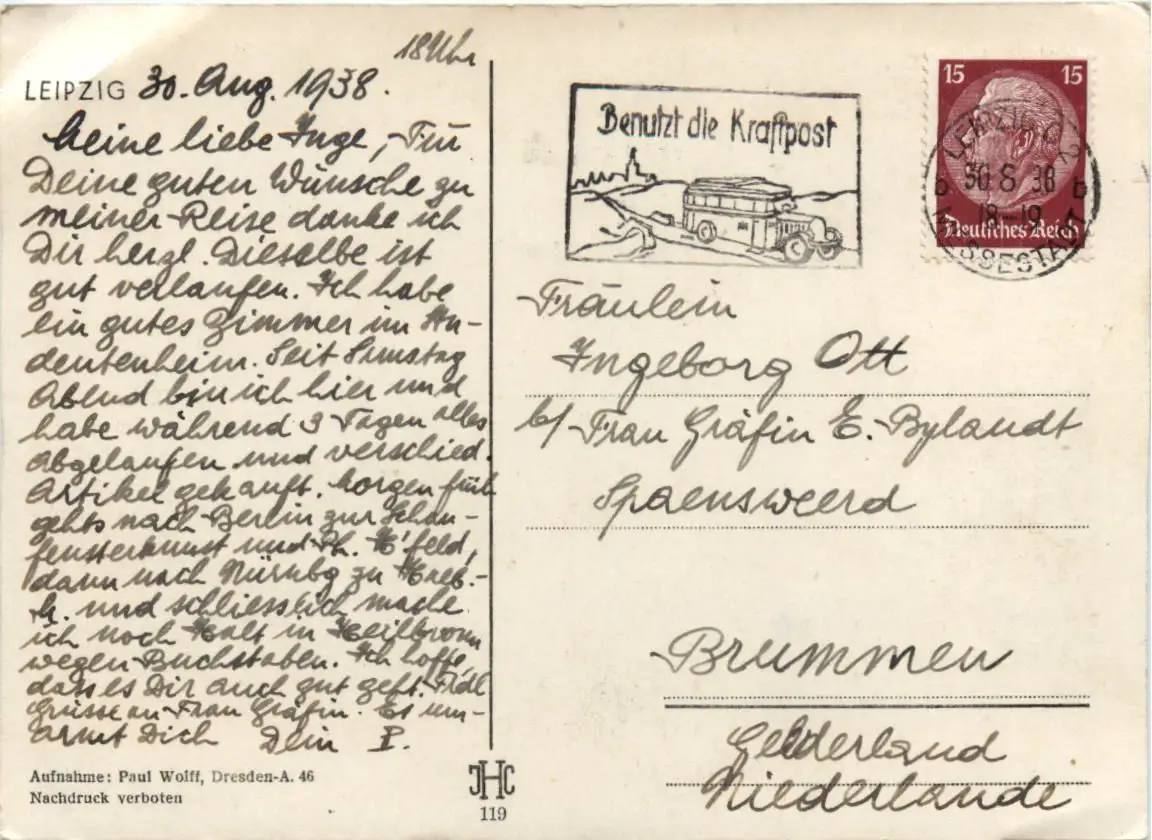 18 Uhr
LEIPZIG 30. Aug. 1938.
Meine liebe Inge, Für
Deine guten Wünsche zu
meiner Reise danke ich
Dir herzl. Dieselbe ist
gut verlaufen. Ich habe
ein gutes Zimmer im Stu-
dentenheim. Seit Sonntag
Abend bin ich hier und
habe während 3 Tagen alles
abgelaufen und verschied.
Artikel gekauft. Morgen früh
gehts nach Berlin zur Schau-
fensterkunst und feld,
dann nach Nürnbg zu
und schliesslich mache
ich noch Halt in Heilbronn
wegen Buchstaben. Ich hoffe,
dass es Dir auch gut geht. Frdl
Grüsse an Frau Gräfin. Es um-
armt Dich Dein
Aufnahme: Paul Wolff, Dresden-A. 46
Nachdruck verboten
JHC
119
Benutzt die Kraftpost
15 15
Deutsches Reich
LEIPZIG C 2
30 8 38
18-19
MESSESTADT
Fräulein
Ingeborg Ott
b/ Frau Gräfin E. Bylandt
Spaensweerd
Brummen
Gelderland
Niederlande